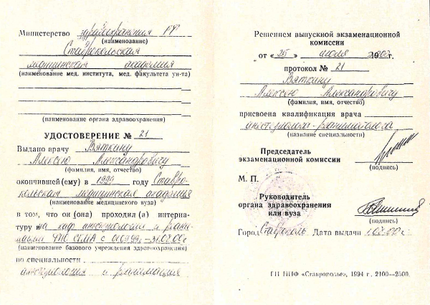 Министерство здравоохранения РФ
(наименование)
Ставропольская
медицинская академия
(наименование мед. института, мед. факультета ун-та)
(наименование органа здравоохранения)
УДОСТОВЕРЕНИЕ № 21
Выдано врачу Вяткину
Алексею Александровичу
(фамилия, имя, отчество)
окончившей(ему) в 1999 году Ставро-
польская медицинская академия
(наименование медицинского вуза)
в том, что он (она) проходил (а) интерна-
туру на
(наименование базового учреждения здравоохранения)
по специальности
анестезиология и реанимация
Решением выпускной экзаменационной
комиссии
от « » июля
протокол № 21
Вяткину
Алексею Александровичу
(фамилия, имя, отчество)
присвоена квалификация врача
анестезиолога-реаниматолога
(название специальности)
Председатель
экзаменационной комиссии
(подпись)
М. П.
Руководитель
органа здравоохранения
или вуза
(подпись)
Город Ставрополь Дата выдачи
ГП ПИФ «Ставрополье», 1994 г. 2100—2500.